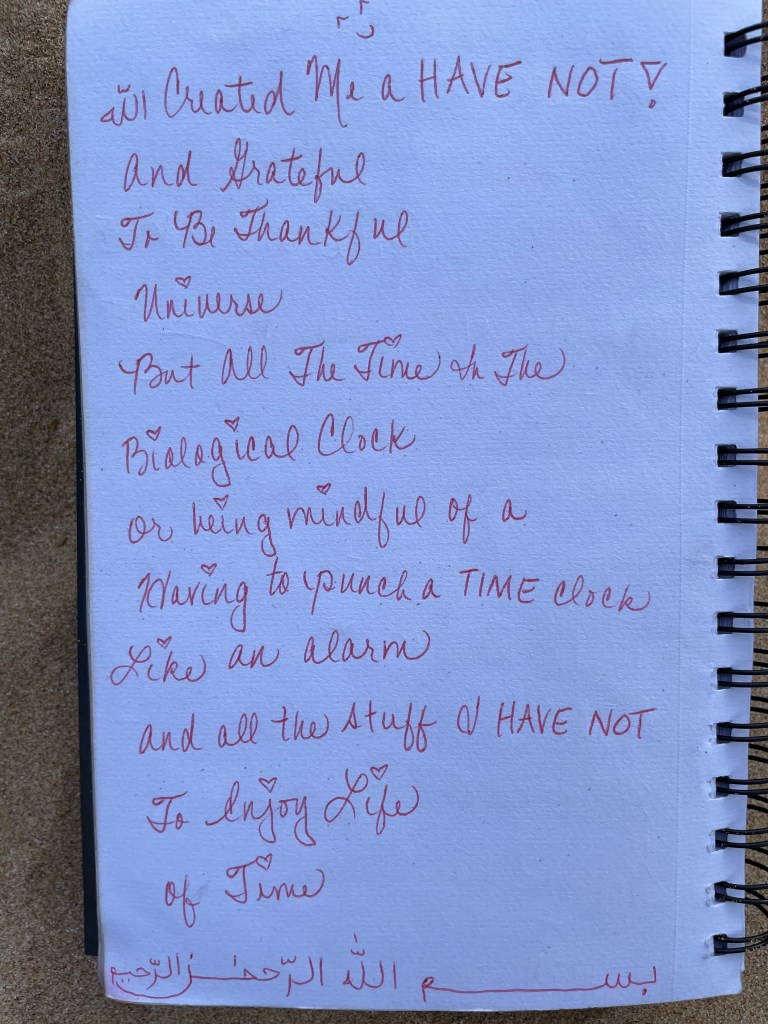 الله Created Me a HAVE NOT!
And Grateful
To Be Thankful
Universe
But All The Time In The
Biological Clock
or being mindful of a
Having to punch a TIME clock
Like an alarm
and all the stuff I HAVE NOT
To Enjoy Life
of Time
بســـــم الله الرّحمٰن الرّحيم